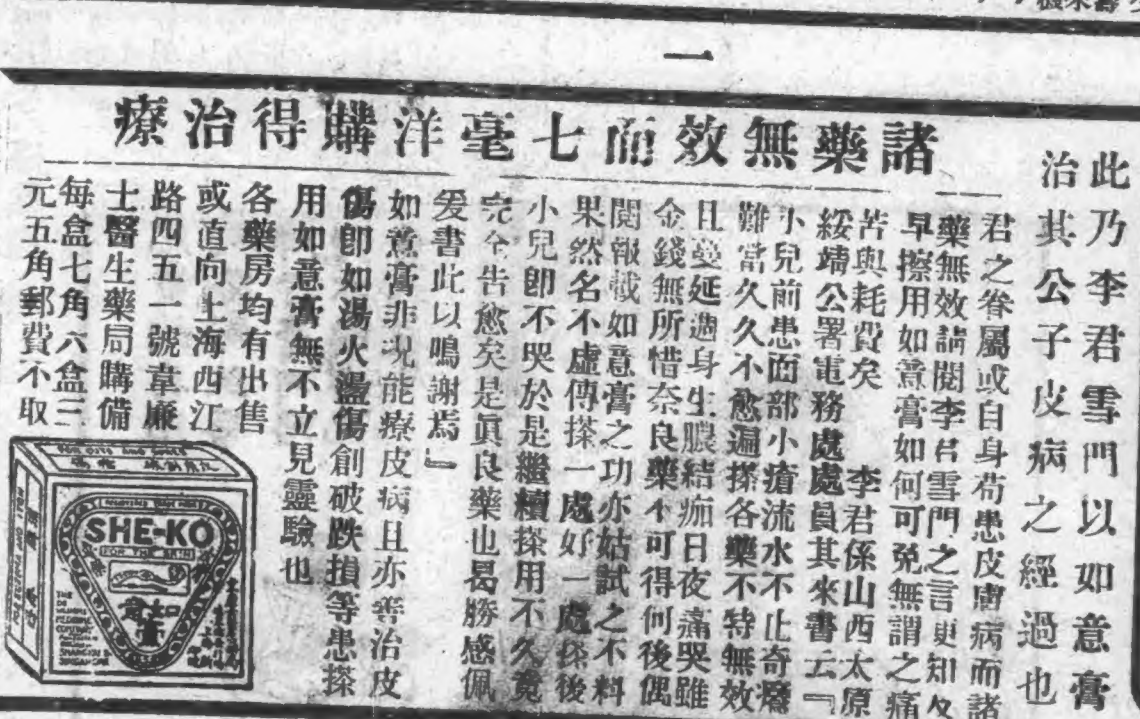 一
諸藥無效而七毫洋購得治療
此乃李君雪門以如意膏
治其公子皮病之經過也
君之眷屬或自身苟患皮膚病而諸
藥無效請閱李君雪門之言更知及
早擦用如意膏如何可免無謂之痛
苦與耗費矣　李君係山西太原
綏靖公署電務處處員其來書云『
小兒前患面部小瘡流水不止奇癢
難當久久不愈遍搽各藥不特無效
且蔓延週身生膿結痂日夜痛哭雖
金錢無所惜奈良藥不可得何後偶
閱報載如意膏之功亦姑試之不料
果然名不虛傳搽一處好一處搽後
小兒卽不哭於是繼續搽用不久竟
完全告愈矣是眞良藥也曷勝感佩
爰書此以鳴謝焉』
如意膏非況能療皮病且亦善治皮
傷卽如湯火盪傷創破跌損等患搽
用如意膏無不立見靈驗也
各藥房均有出售
或直向上海西江
路四五一號韋廉
士醫生藥局購備
每盒七角六盒三
元五角郵費不取
FOR CUTS AND SORES
SHE-KO
FOR THE SKIN
如意膏
THE
DR
WILLIAMS
MEDICINE
COMPANY
SHANGHAI &
SINGAPORE